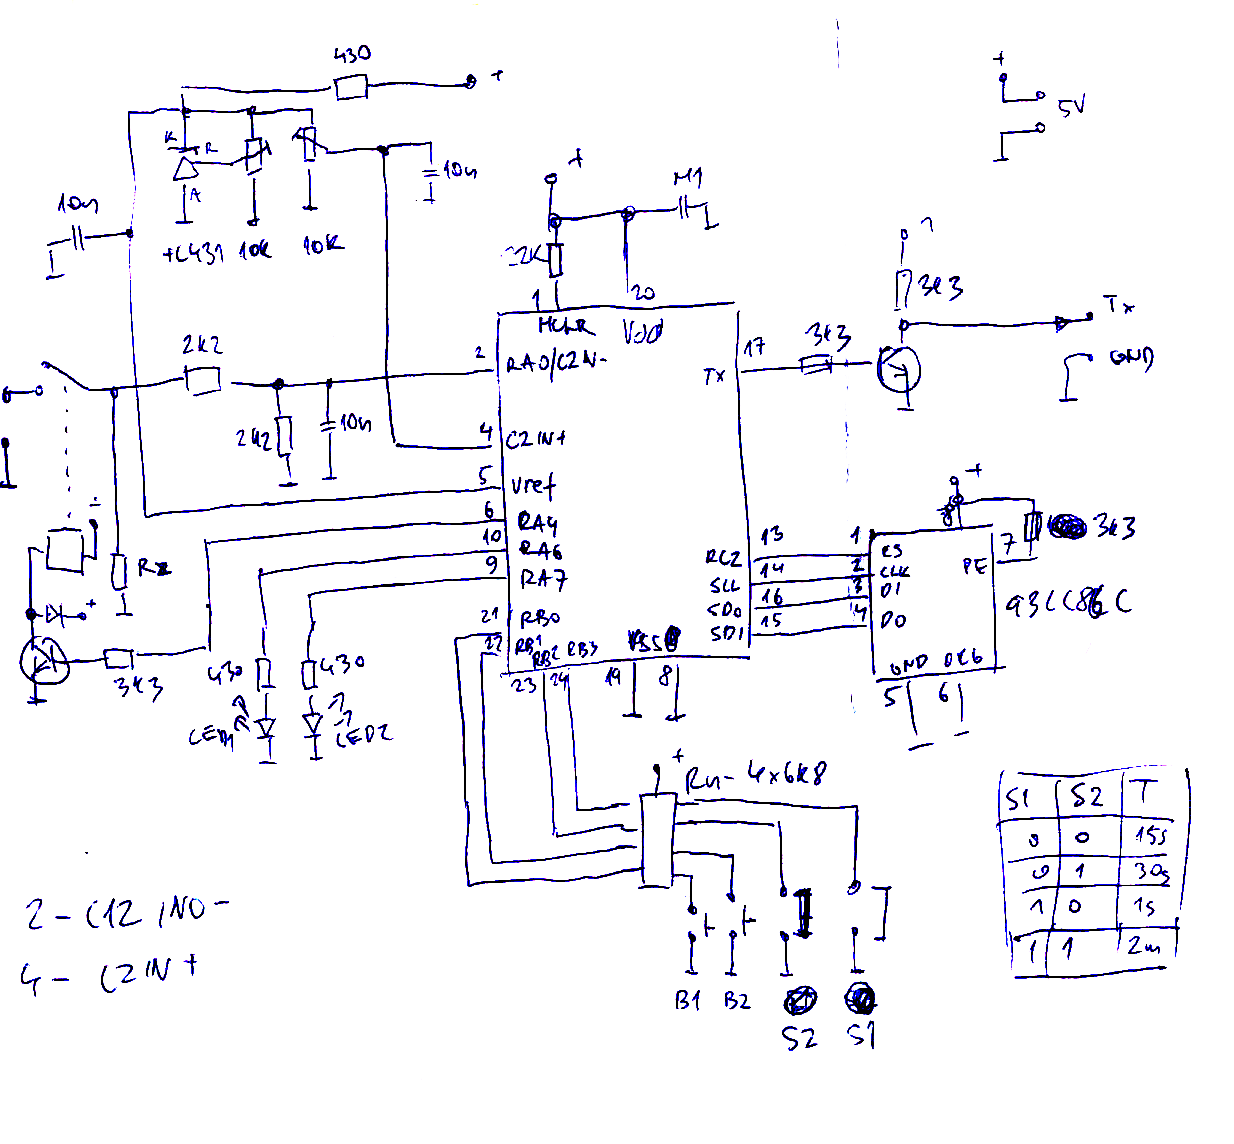 430
+
+
5V
K
R
A
10n
+L431
10K
10K
10n
+
M1
1
20
MCLR
Vdd
2k2
2
RA0/C2IN-
17
Tx
3k3
3k3
Tx
GND
2k2
10n
4
C2IN+
5
Vref
6
RA4
10
RA6
9
RA7
21
RB0
22
RB1
RB2
RB3
23
24
VSS
19
8
RC2
13
SCL
14
SDO
16
SDI
15
+
1
CS
2
CLK
3
DI
4
DO
PE
7
3k3
93LC86C
GND
ORG
5
6
Rz
+
3k3
430
430
LED1
LED2
+
Rn-4x6k8
B1
B2
S2
S1
S1 S2 T
0 0 15s
0 1 30s
1 0 1s
1 1 2m
2 - C12IN0-
4 - C2IN+